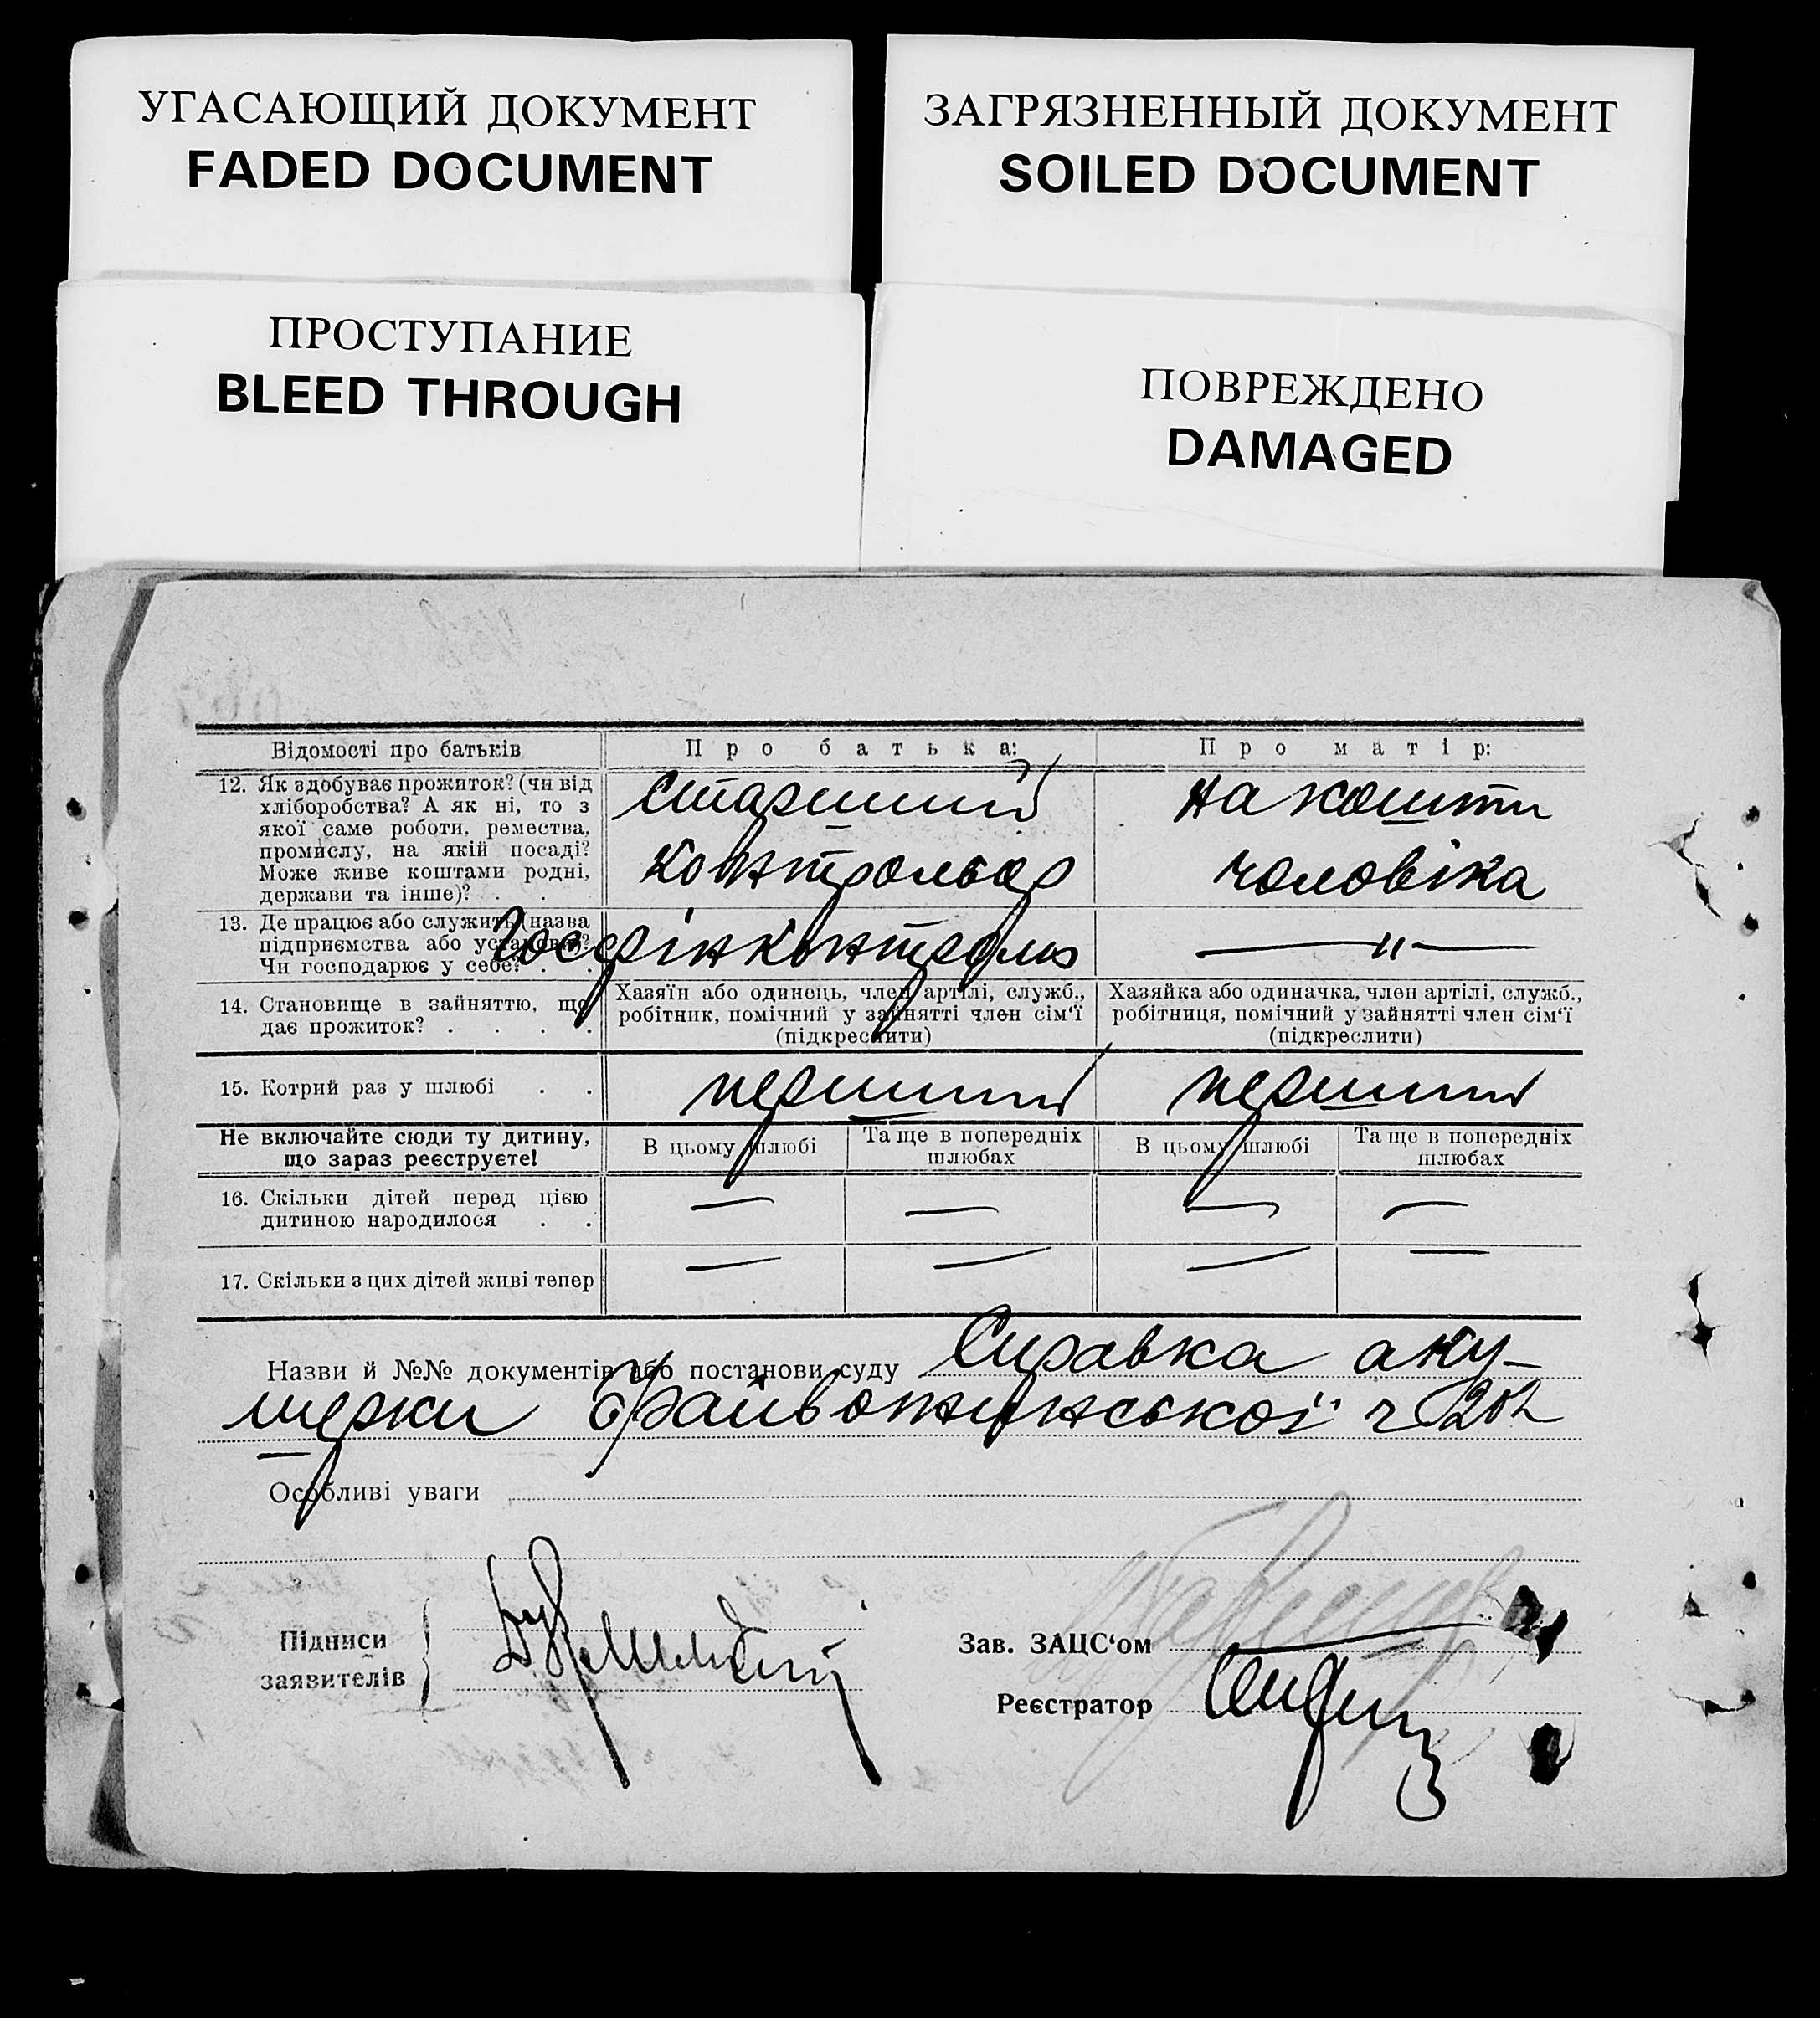 УГАСАЮЩИЙ ДОКУМЕНТ
FADED DOCUMENT
ЗАГРЯЗНЕННЫЙ ДОКУМЕНТ
SOILED DOCUMENT
ПРОСТУПАНИЕ
BLEED THROUGH
ПОВРЕЖДЕНО
DAMAGED
Відомості про батьків
Про батька:
Про матір:
12. Як здобуває прожиток? (чи від
хліборобства? А як ні, то з
якої саме роботи, ремества,
промислу, на якій посаді?
Може живе коштами родні,
держави та інше)? . .
Старший
контрольор
на кошти
чоловіка
13. Де працює або служить (назва
підприємства або установи)?
Чи господарює у себе? . .
Госфінконтроль
— " —
14. Становище в зайняттю, що
дає прожиток? . . . .
Хазяїн або одинець, член артілі, служб.,
робітник, помічний у зайнятті член сім'ї
(підкреслити)
Хазяйка або одиначка, член артілі, служб.,
робітниця, помічний у зайнятті член сім'ї
(підкреслити)
15. Котрий раз у шлюбі . .
перший
перший
Не включайте сюди ту дитину,
що зараз реєструєте!
В цьому шлюбі
Та ще в попередніх
шлюбах
В цьому шлюбі
Та ще в попередніх
шлюбах
16. Скільки дітей перед цією
дитиною народилося . .
— — — —
17. Скільки з цих дітей живі тепер
— — — —
Назви й №№ документів або постанови суду Справка аку-
шерки
Особливі уваги
Підписи
заявителів
Зав. ЗАЦС'ом
Реєстратор